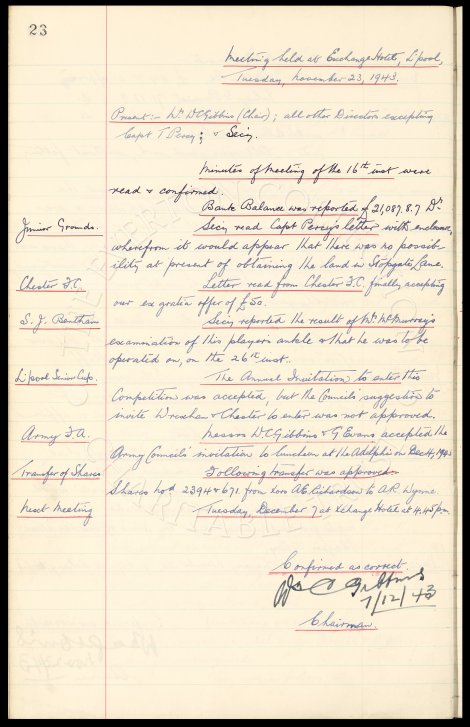 23
Meeting held at Exchange Hotel, L'pool,
Tuesday, November 23, 1943.
Present:- Wm. W.C. Gibbins (Chair); all other Directors excepting
Capt T. Percy; & Secy.
Minutes of Meeting of the 16th inst were
read & confirmed.
Bank Balance was reported £21,087.8.7 Dr.
Junior Grounds. Secy read Capt Percy's letter with enclosure,
wherefrom it would appear that there was no possib-
ility at present of obtaining the land in Stopgate Lane.
Chester F.C. Letter read from Chester F.C. finally accepting
our ex gratia offer of £50.
S. J. Bentham Secy reported the result of Mr. McMurray's
examination of this player's ankle & that he was to be
operated on, on the 26th inst.
L'pool Senior Cup. The Annual Invitation to enter this
Competition was accepted, but the Council's suggestion to
invite Wrexham & Chester to enter was not approved.
Army F.A. Messrs W.C. Gibbins & G Evans accepted the
Army Council's invitation to luncheon at the Adelphi on Dec 4, 1943
Transfer of Shares Following transfer was approved
Shares Nod 2394 & 671 from A.E. Richardson to A.R. Wynne.
Next Meeting Tuesday, December 7 at Xchange Hotel at 4.45 pm.
Confirmed as correct.
Wm C Gibbins
7/12/43
Chairman.